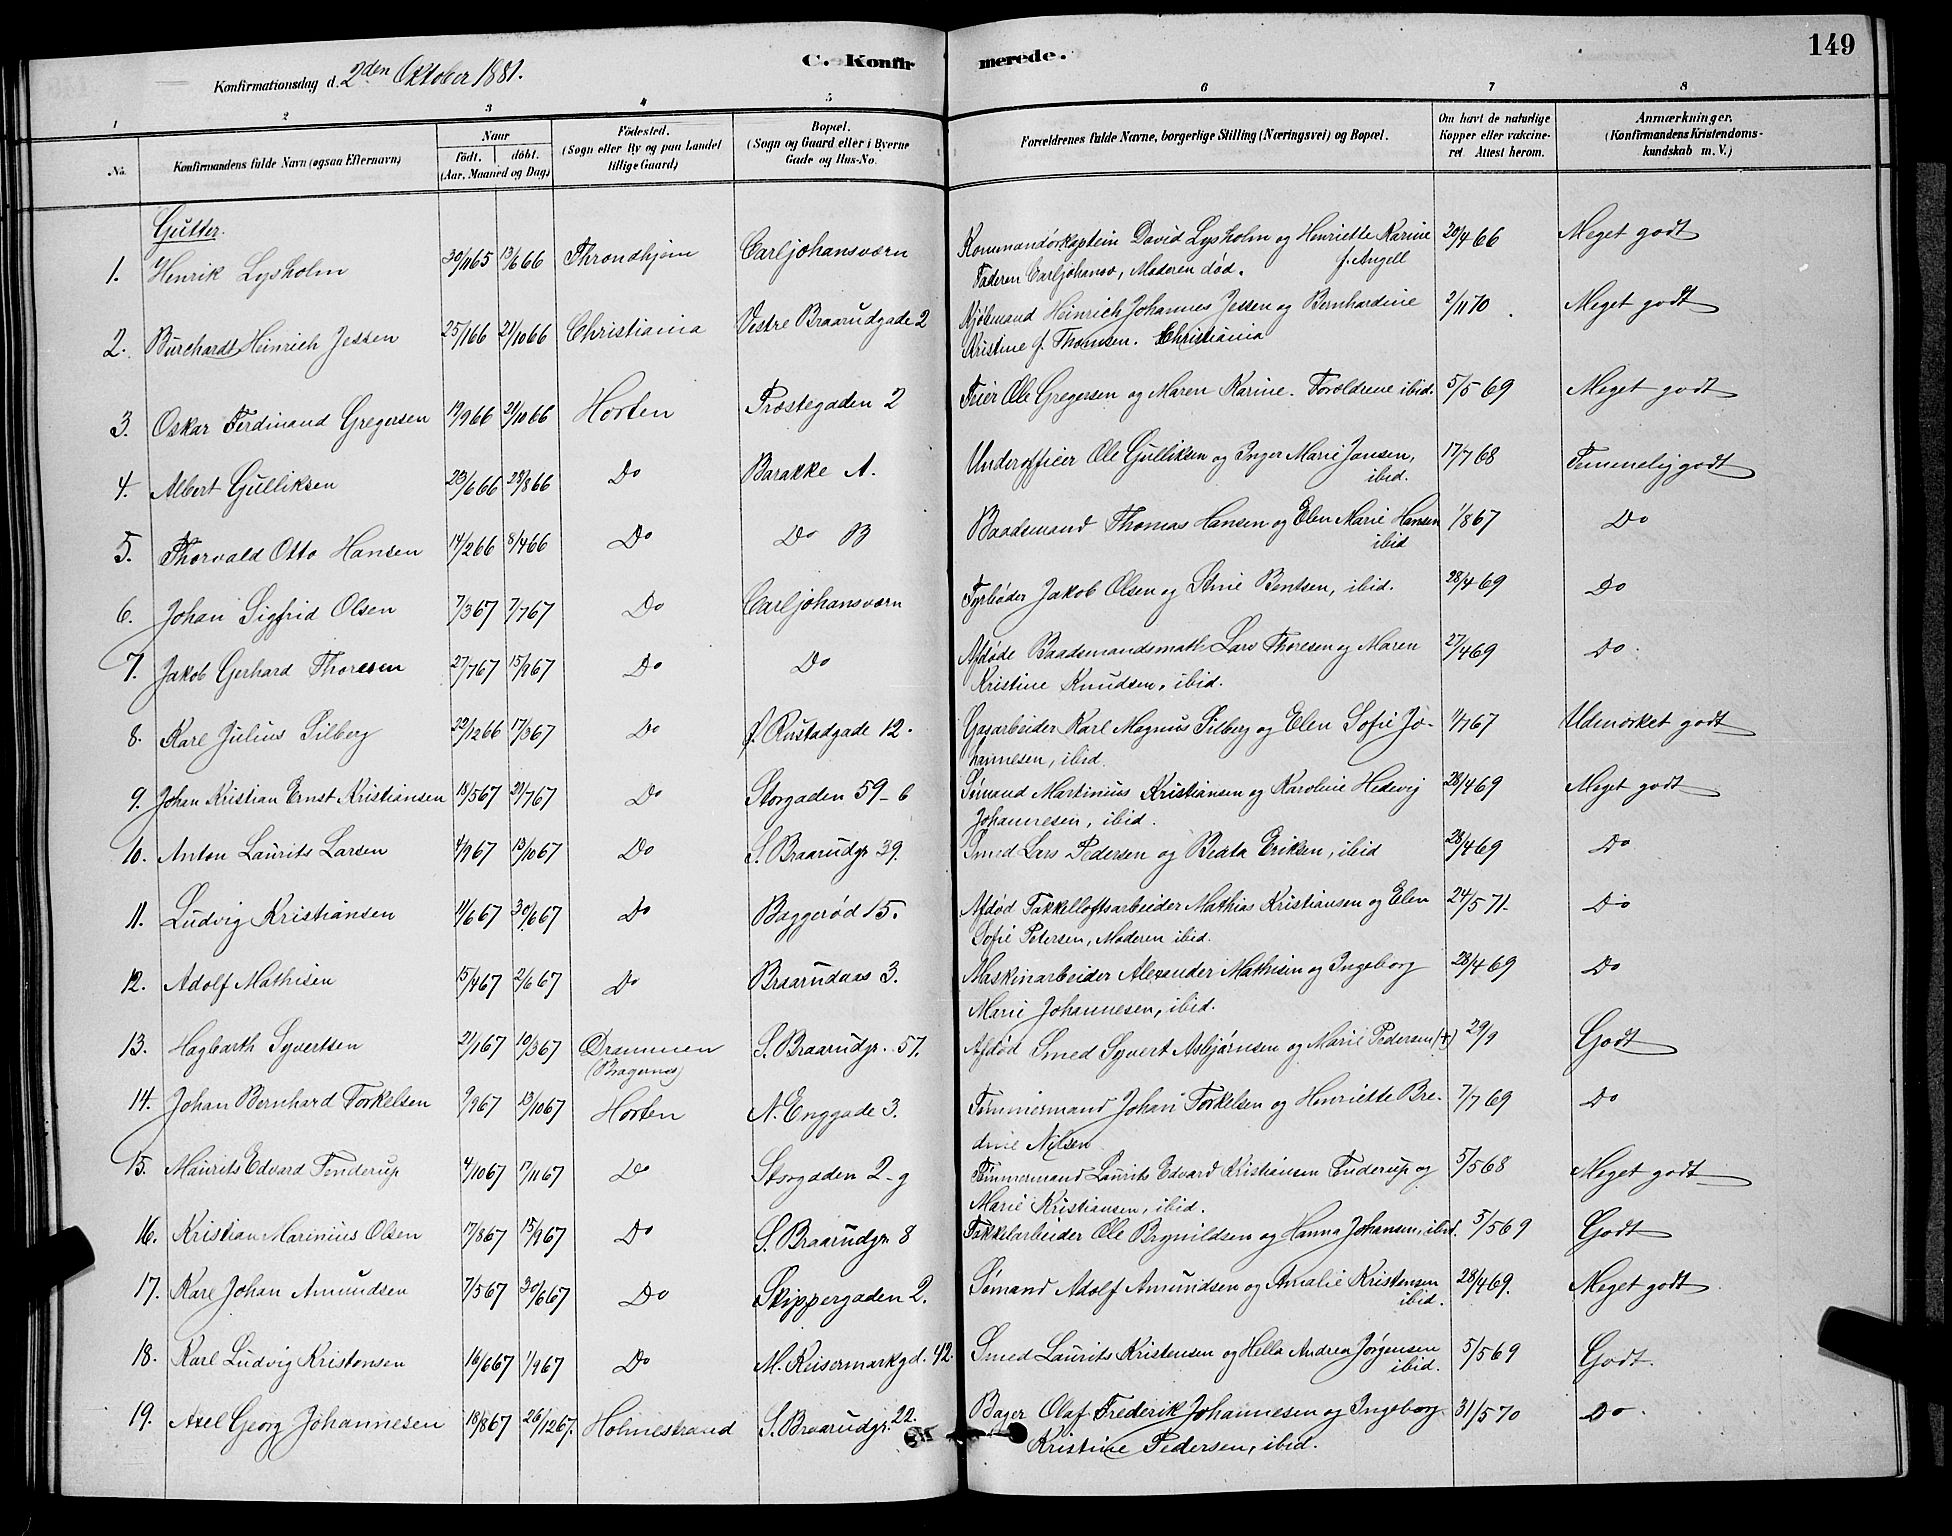 149
C. Konfirmerede.
Konfirmationsdag d. 2den Oktober 1881.
1 2 3 4 5 6 7 8
No.
Konfirmandens fulde Navn (ogsaa Efternavn)
Naar
født. døbt.
(Aar, Maaned og Dag)
Fødested.
(Sogn eller By og paa Landet
tillige Gaard)
Bopæl.
(Sogn og Gaard eller i Byerne
Gade og Hus-No.
Forældrenes fulde Navne, borgerlige Stilling (Næringsvei) og Bopæl.
Om havt de naturlige
Kopper eller vakcine-
ret Attest herom.
Anmærkninger.
(Konfirmandens Kristendoms-
kundskab m. V.)
Gutter.
1. Henrik Lysholm 30/1165 13/666 Throndhjem Carljohansværn Kommandørkaptein David Lysholm og Henriette Karine f. Angell 20/466 Meget godt
Faderen Carljohansv, Moderen død.
2. Burchardt Heinrich Jessen 25/166 21/1066 Christiania Vestre Braarudgade 2 Kjøbmand Heinrich Johannes Jessen og Bernhardine 2/1170 Meget godt
Kristine f. Thomsen. Christiania
3. Oskar Ferdinand Gregersen 19/966 21/1066 Horten Præstegaden 2 Feier Ole Gregersen og Maren Karine. Forældrene ibid. 5/569 Meget godt
4. Albert Gulliksen 23/666 28/866 Do Barakke A. Underofficier Ole Gulliksen og Inger Marie Jansen, 17/768 Temmelig godt
ibid.
5. Thorvald Otto Hansen 14/266 8/466 Do Do B Baadsmand Thomas Hansen og Elen Marie Hansen 1/867 Do
ibid
6. Johan Sigfrid Olsen 7/367 7/767 Do Carljohansværn Fyrbøder Jakob Olsen og Stine Bentsen, ibid. 28/469 Do
7. Jakob Gerhard Thoresen 27/767 15/967 Do Do Afdøde Baadsmandsmath Lars Thoresen og Maren 27/469 Do
Kristine Knudsen, ibid.
8. Karl Julius Silberg 22/1266 17/367 Do Rustadgade 12. Gasarbeider Karl Magnus Silberg og Elen Sofie Jo- 11/767 Udmærket godt
hannesen, ibid.
9. Johan Kristian Ernst Kristiansen 18/567 21/767 Do Storgaden 59-6 Sømand Martinius Kristiansen og Karoline Hedevig 28/469 Meget godt
Johannesen, ibid.
10. Anton Laurits Larsen 4/967 13/1067 Do S. Braarudgr 39. Smed Lars Pedersen og Beata Eriksen, ibid 28/469 Do
11. Ludvig Kristiansen 11/667 30/667 Do Baggerød 15. Afdød Takkelloftsarbeider Mathias Kristiansen og Elen 24/571 Do
Sofie Petersen, Moderen ibid.
12. Adolf Mathisen 15/467 2/667 Do Braarudaas 3. Maskinarbeider Alexander Mathisen og Ingeborg 28/469 Do
Marie Johannesen, ibid.
13. Hagbarth Syvertsen 21/167 10/367 Drammen S. Braarudgr. 57. Afdød Smed Syvert Asbjørnsen og Marie Pedersen (+) 29/9 Godt
(Bragernes)
14. Johan Bernhard Torkelsen 9/967 13/1067 Horten N. Enggade 3. Tømmermand Johan Torkelsen og Henriette Bre- 7/769 Do
dine Nilsen
15. Maurits Edvard Tenderup 4/1067 17/1167 Do Storgaden 2-g Tømmermand Laurits Edvard Kristiansen Tenderup og 5/568 Meget godt
Marie Kristiansen, ibid.
16. Kristian Marinius Olsen 17/867 15/967 Do S. Braarudgr. 8 Takkelarbeider Ole Brynildsen og Hanna Johansen, ibid. 5/569 Godt
17. Karl Johan Amundsen 7/567 30/667 Do Skippergaden 2. Sømand Adolf Amundsen og Amalie Kristensen 28/469. Meget godt
ibid.
18. Karl Ludvig Kristensen 16/667 1/967 Do M. Keisermarkgd. 42. Smed Laurits Kristensen og Hella Andrea Jørgensen 5/569 Godt.
ibid.
19. Axel Georg Johannesen 18/867 26/1267. Holmestrand S. Braarudgr. 22. Bager Olaf Frederik Johannesen og Ingeborg 31/570 Do
Kristine Pedersen, ibid.